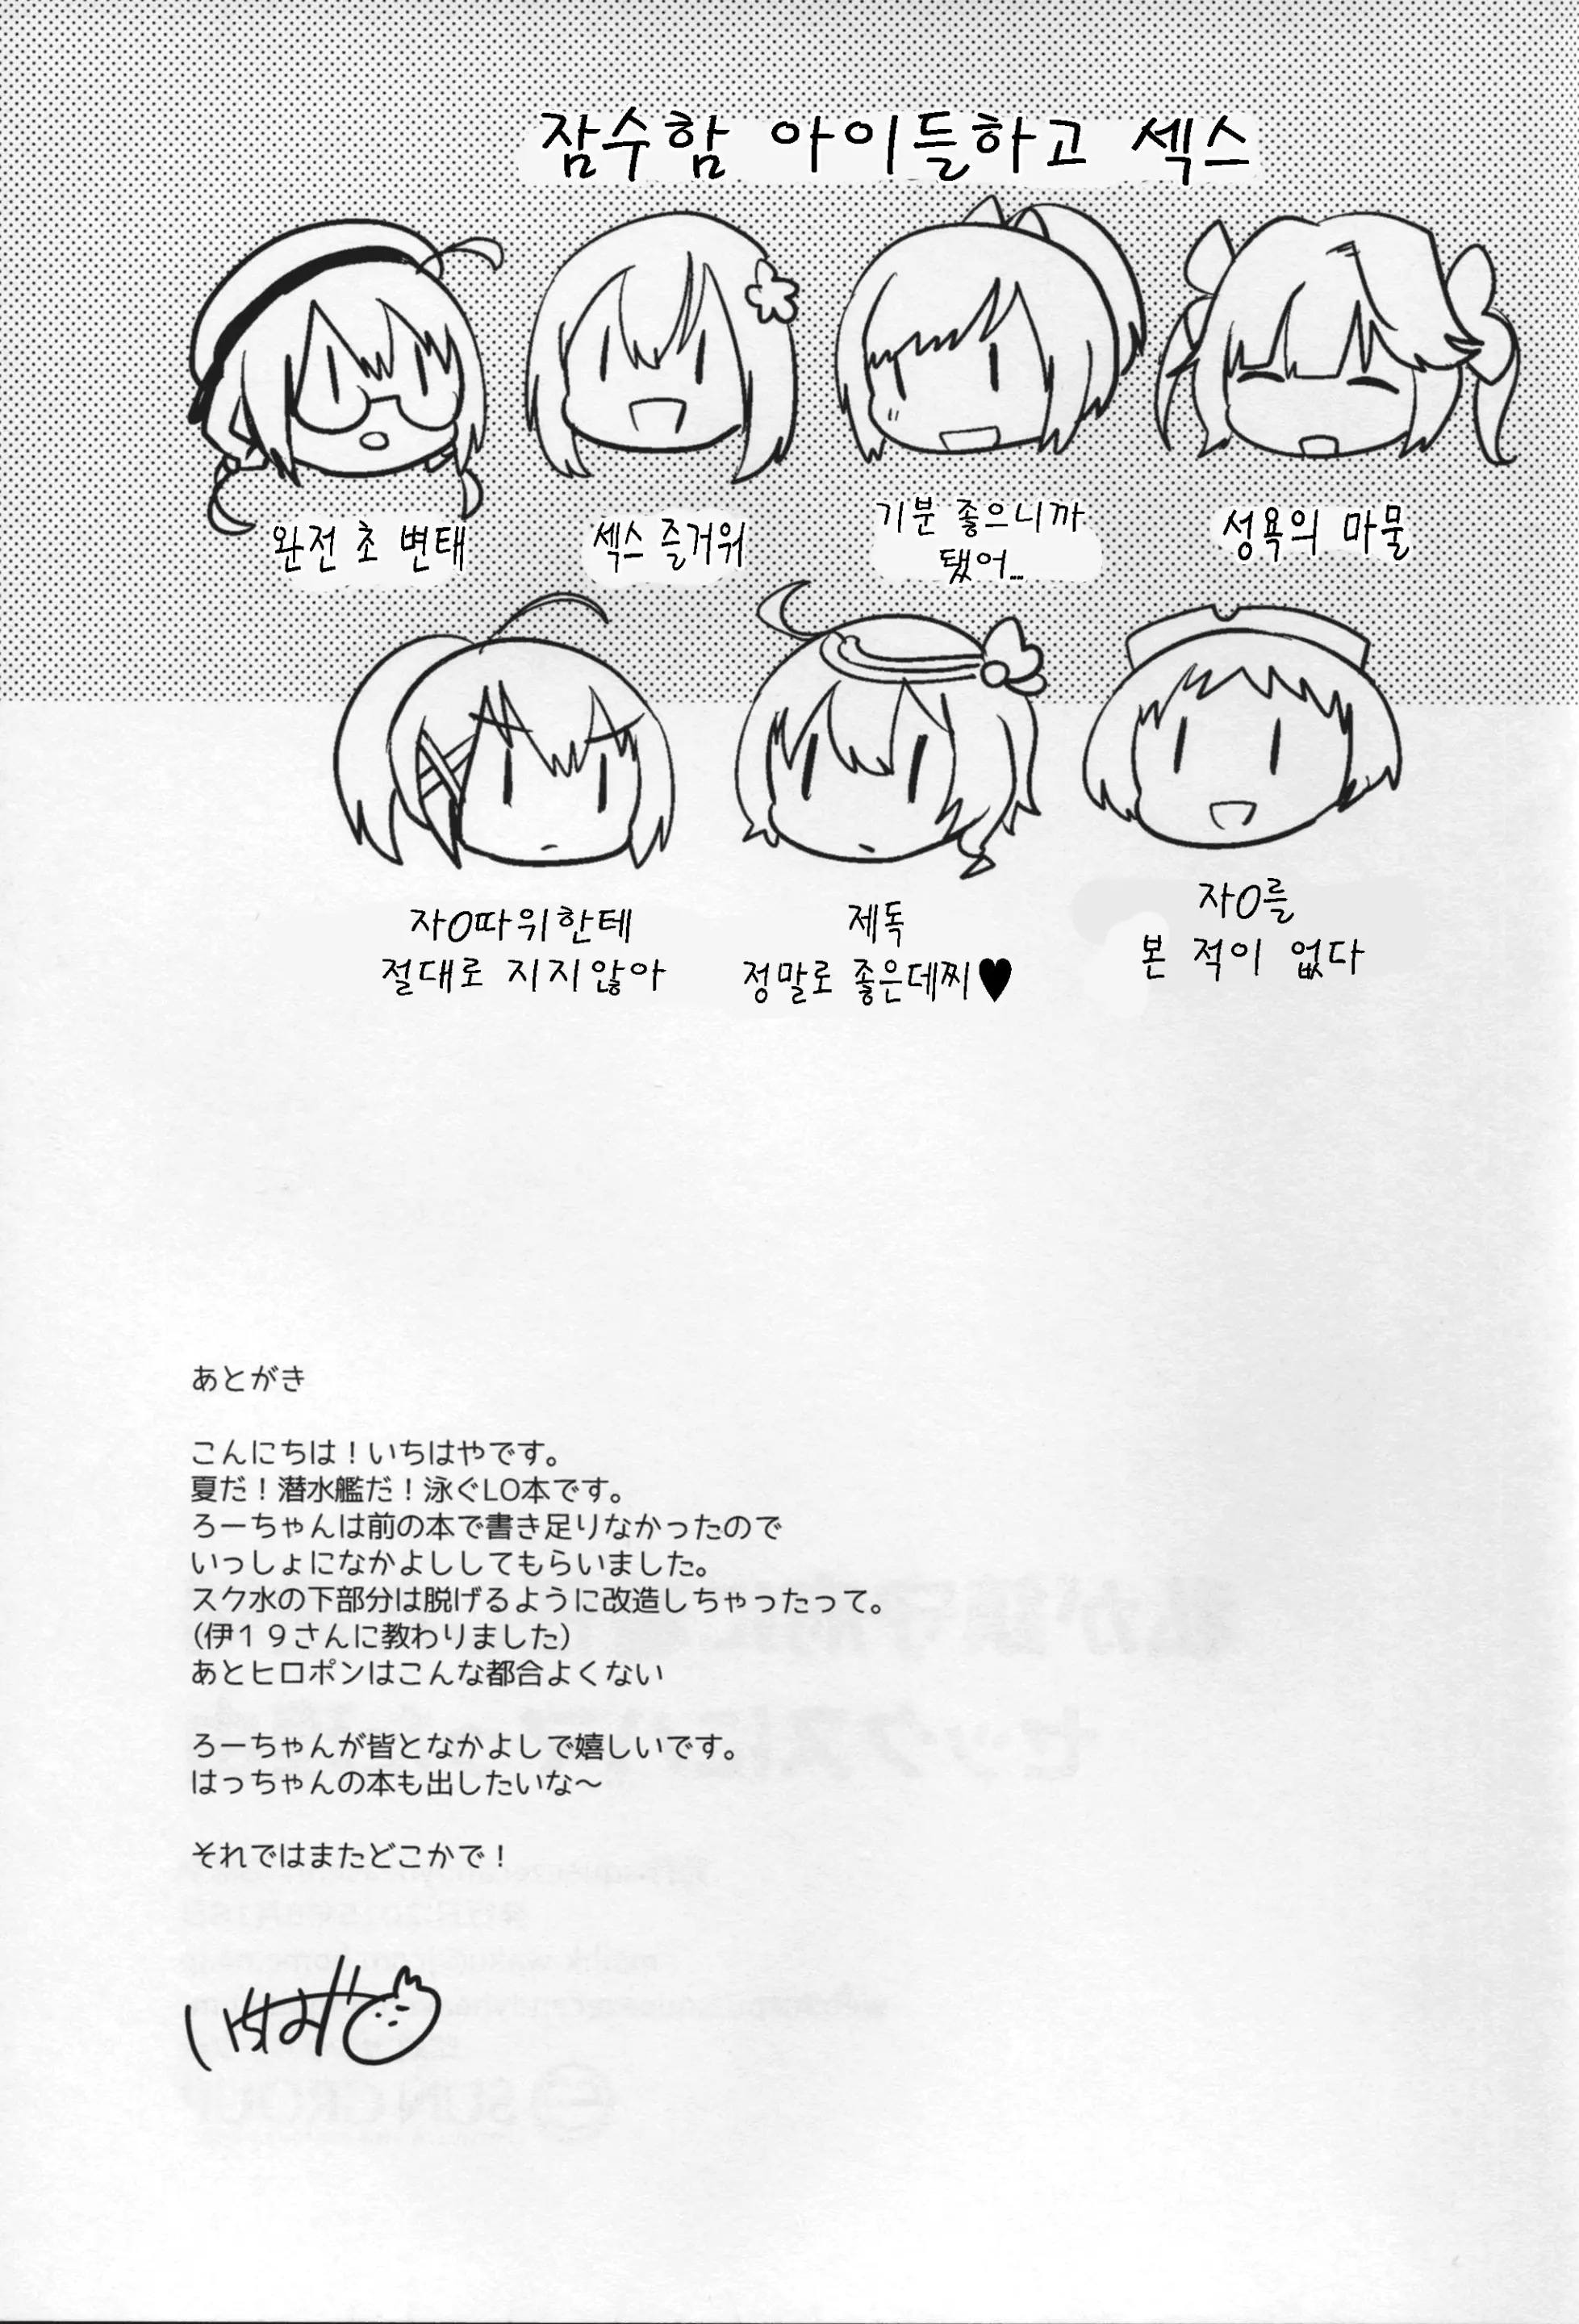 잠수함 아이들하고 섹스
완전 초 변태
섹스 즐거워
기분 좋으니까
됐어...
성욕의 마물
자O따위한테
절대로 지지않아
제독
정말로 좋은데찌♥
자O를
본 적이 없다
あとがき
こんにちは！いちはやです。
夏だ！潜水艦だ！泳ぐLO本です。
ろーちゃんは前の本で書き足りなかったので
いっしょになかよししてもらいました。
スク水の下部分は脱げるように改造しちゃったって。
（伊１９さんに教わりました）
あとヒロポンはこんな都合よくない
ろーちゃんが皆となかよしで嬉しいです。
はっちゃんの本も出したいな～
それではまたどこかで！
いちはや